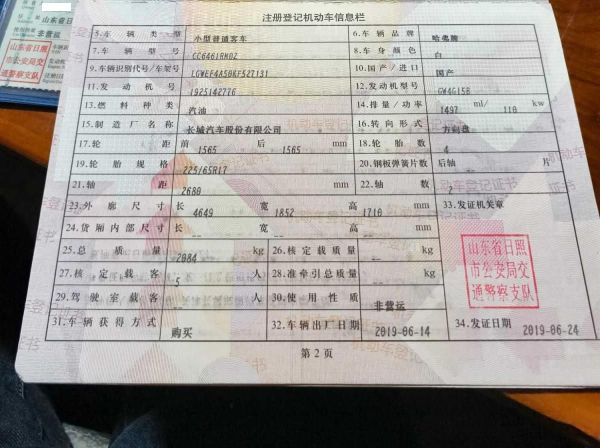 山东省日照
市公安局交
通警察支队
非营运
注册登记机动车信息栏
5.车辆类型 小型普通客车 6.车辆品牌 哈弗牌
7.车辆型号 CC6461RM0Z 8.车身颜色 白
9.车辆识别代号/车架号 LGWEF4A58KF527131 10.国产/进口 国产
11.发动机号 1925142776 12.发动机型号 GW4G15B
13.燃料种类 汽油 14.排量/功率 1497 ml/ 110 kw
15.制造厂名称 长城汽车股份有限公司 16.转向形式 方向盘
17.轮距 前 1565 后 1565 mm 18.轮胎数 4
19.轮胎规格 225/65R17 20.钢板弹簧片数 后轴 -- 片
21.轴距 2680 mm 22.轴数 2
23.外廓尺寸 长 4649 宽 1852 高 1710 mm 33.发证机关章
24.货厢内部尺寸 长 -- 宽 -- 高 -- mm
25.总质量 2084 kg 26.核定载质量 -- kg
27.核定载客 5 人 28.准牵引总质量 -- kg
29.驾驶室载客 -- 人 30.使用性质 非营运
31.车辆获得方式 购买 32.车辆出厂日期 2019-06-14 34.发证日期 2019-06-24
山东省日照
市公安局交
通警察支队
第2页